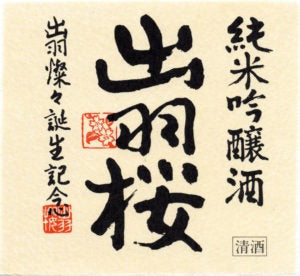 純米吟醸酒
出羽桜
出羽燦々誕生記念
清酒